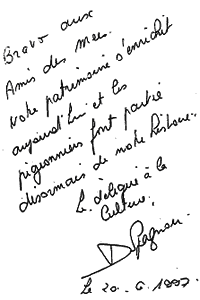 Bravo aux
Amis des
Notre patrimoine s'enrichit
aujourd'hui et les
pigeonniers font partie
désormais de notre histoire.
Le délégué à la
Culture,
Le 20. 6. 1997.